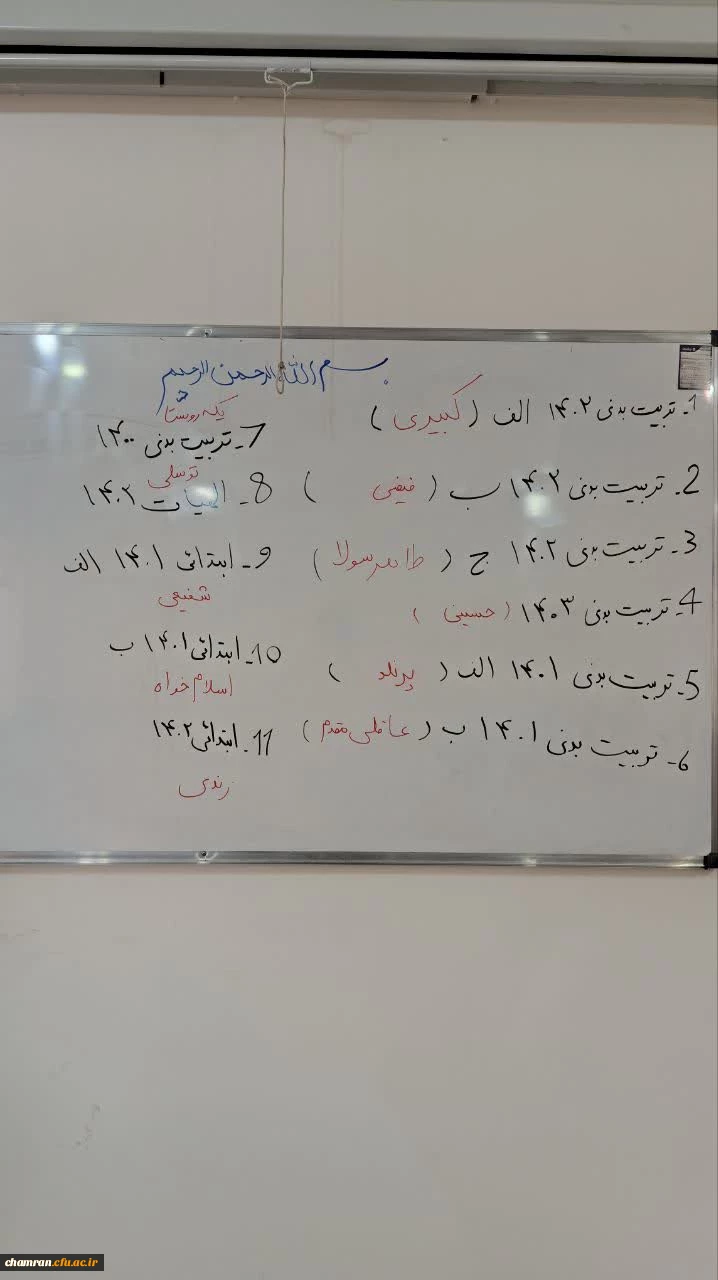 بسم الله الرحمن الرحیم
1- تربیت بدنی ۱۴۰۲ الف (کبیری)
2- تربیت بدنی ۱۴۰۲ ب (فیضی)
3- تربیت بدنی ۱۴۰۲ ج (طاهر سولا)
4- تربیت بدنی ۱۴۰۳ (حسینی)
5- تربیت بدنی ۱۴۰۱ الف (پرنلو)
6- تربیت بدنی ۱۴۰۱ ب (عاقلی مقدم)
یکه روستا
7- تربیت بدنی ۱۴۰۰
توسلی
8- الهیات ۱۴۰۲
9- ابتدائی ۱۴۰۱ الف
شفیعی
10- ابتدائی ۱۴۰۱ ب
اسلام خواه
11- ابتدائی ۱۴۰۲
زندی
chamran.cfu.ac.ir